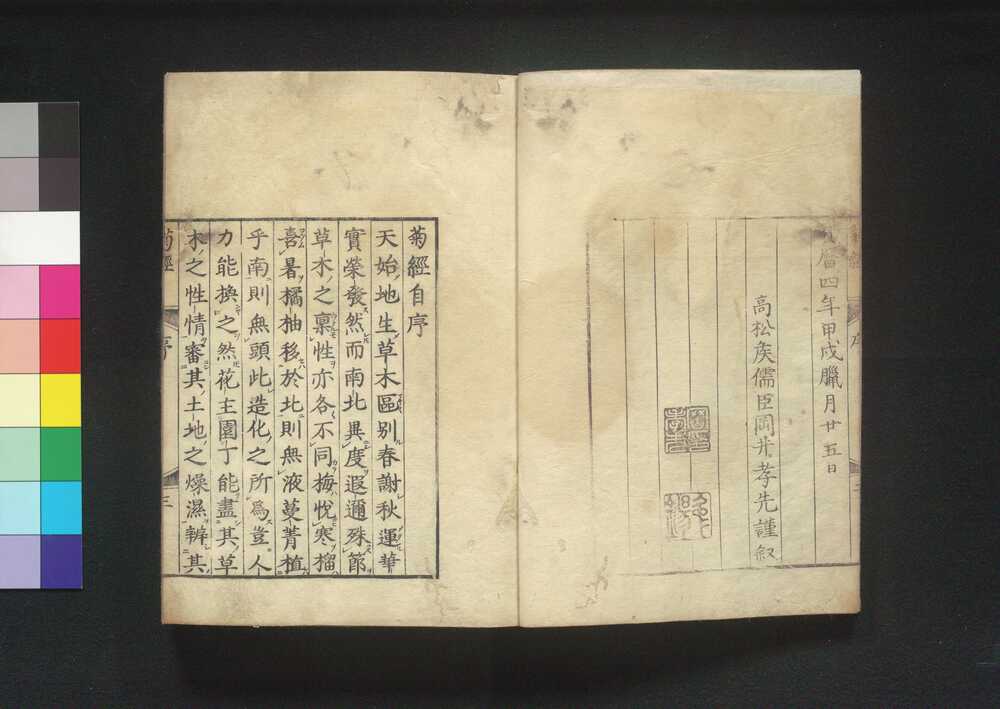 曆四年甲戌臘月廿五日
高松矦儒臣岡井孝先謹叙
菊經自序
天始地生草木區別春謝秋運華
實榮發然而南北異度遐邇殊節
草木之稟性亦各不同梅悅寒榴
喜暑橘柚移於北則無液蔓菁植
乎南則無頭此造化之所爲豈人
力能換之然花主園丁能盡其草
木之性情審其土地之燥濕辨其
菊經
序